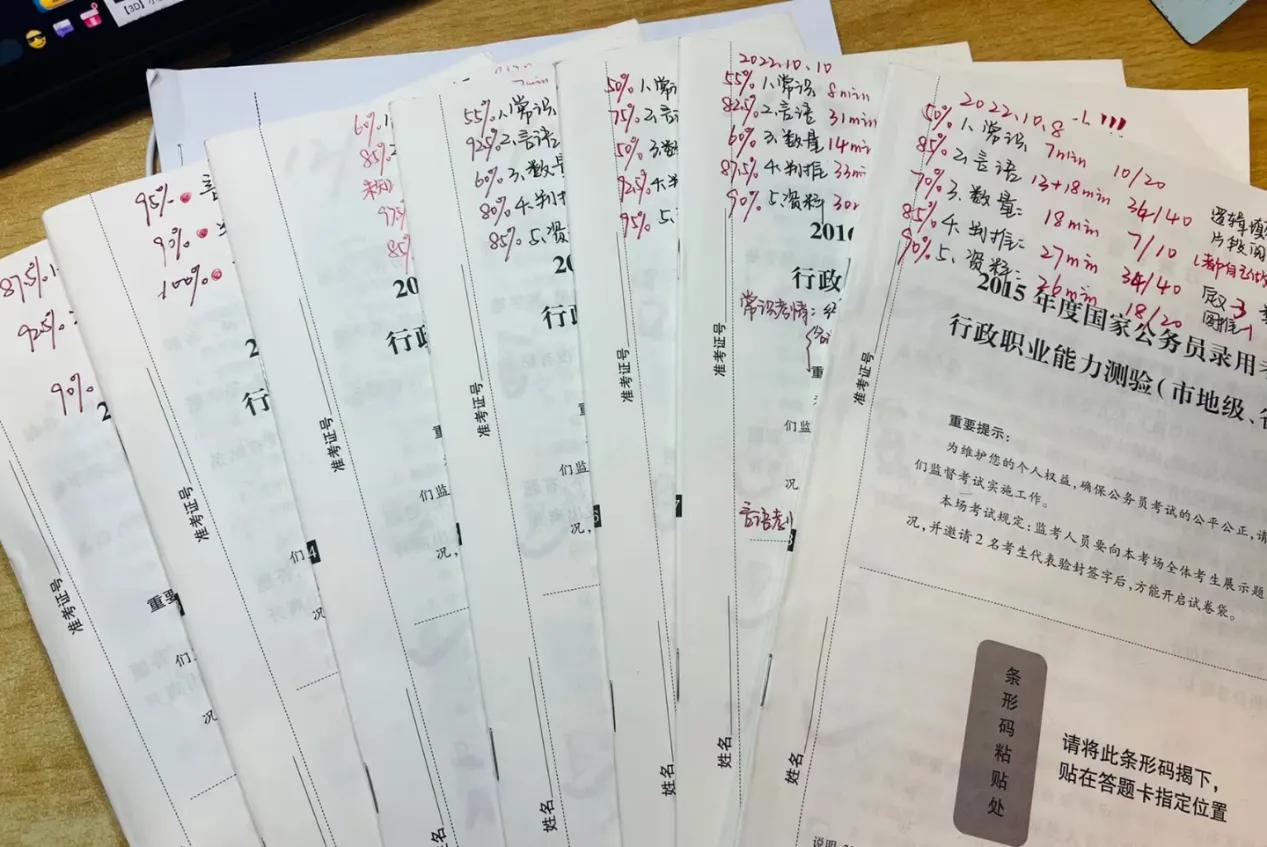 【3D】
87.5%
92.5%
90%
2
准考证号
95%
90%
100%
2
行
重要
们
况
准考证号
60%
85%
97.5
85%
20
行政
4
们监
况,
准考证号
姓名
55% 1.常识
92.5% 2.言语
60% 3.数量
80% 4.判推
85% 5.资
20
行政
们监
况,
6
准考证号
姓名
50% 1.常识
75% 2.言
50% 3.数
92.5% 4.判
95% 5.
7
准考证号
姓名
2022.10.10
55% 1.常识 8min
82.5% 2.言语 31min
60% 3.数量 14min
87.5% 4.判推 33min
90% 5.资料
2016
行政
常识考情:
重
们监
况
言语考
8
准考证号
姓名
2022.10.8
50% 1.常识 7min 10/20
85% 2.言语 13+18min 34/40
70% 3.数量: 18min 7/10
85% 4.判推: 27min 34/40
90% 5.资料: 26min 18/20
逻辑填
片段阅
定义3
图推1
2015年度国家公务员录用
行政职业能力测验(市地级、
重要提示:
为维护您的个人权益,确保公务员考试的公平公正,请
们监督考试实施工作。
本场考试规定:监考人员要向本考场全体考生展示题
况,并邀请2名考生代表验封签字后,方能开启试卷袋。
准考证号
姓名
条形码粘贴处
请将此条形码揭下,
贴在答题卡指定位置
说明